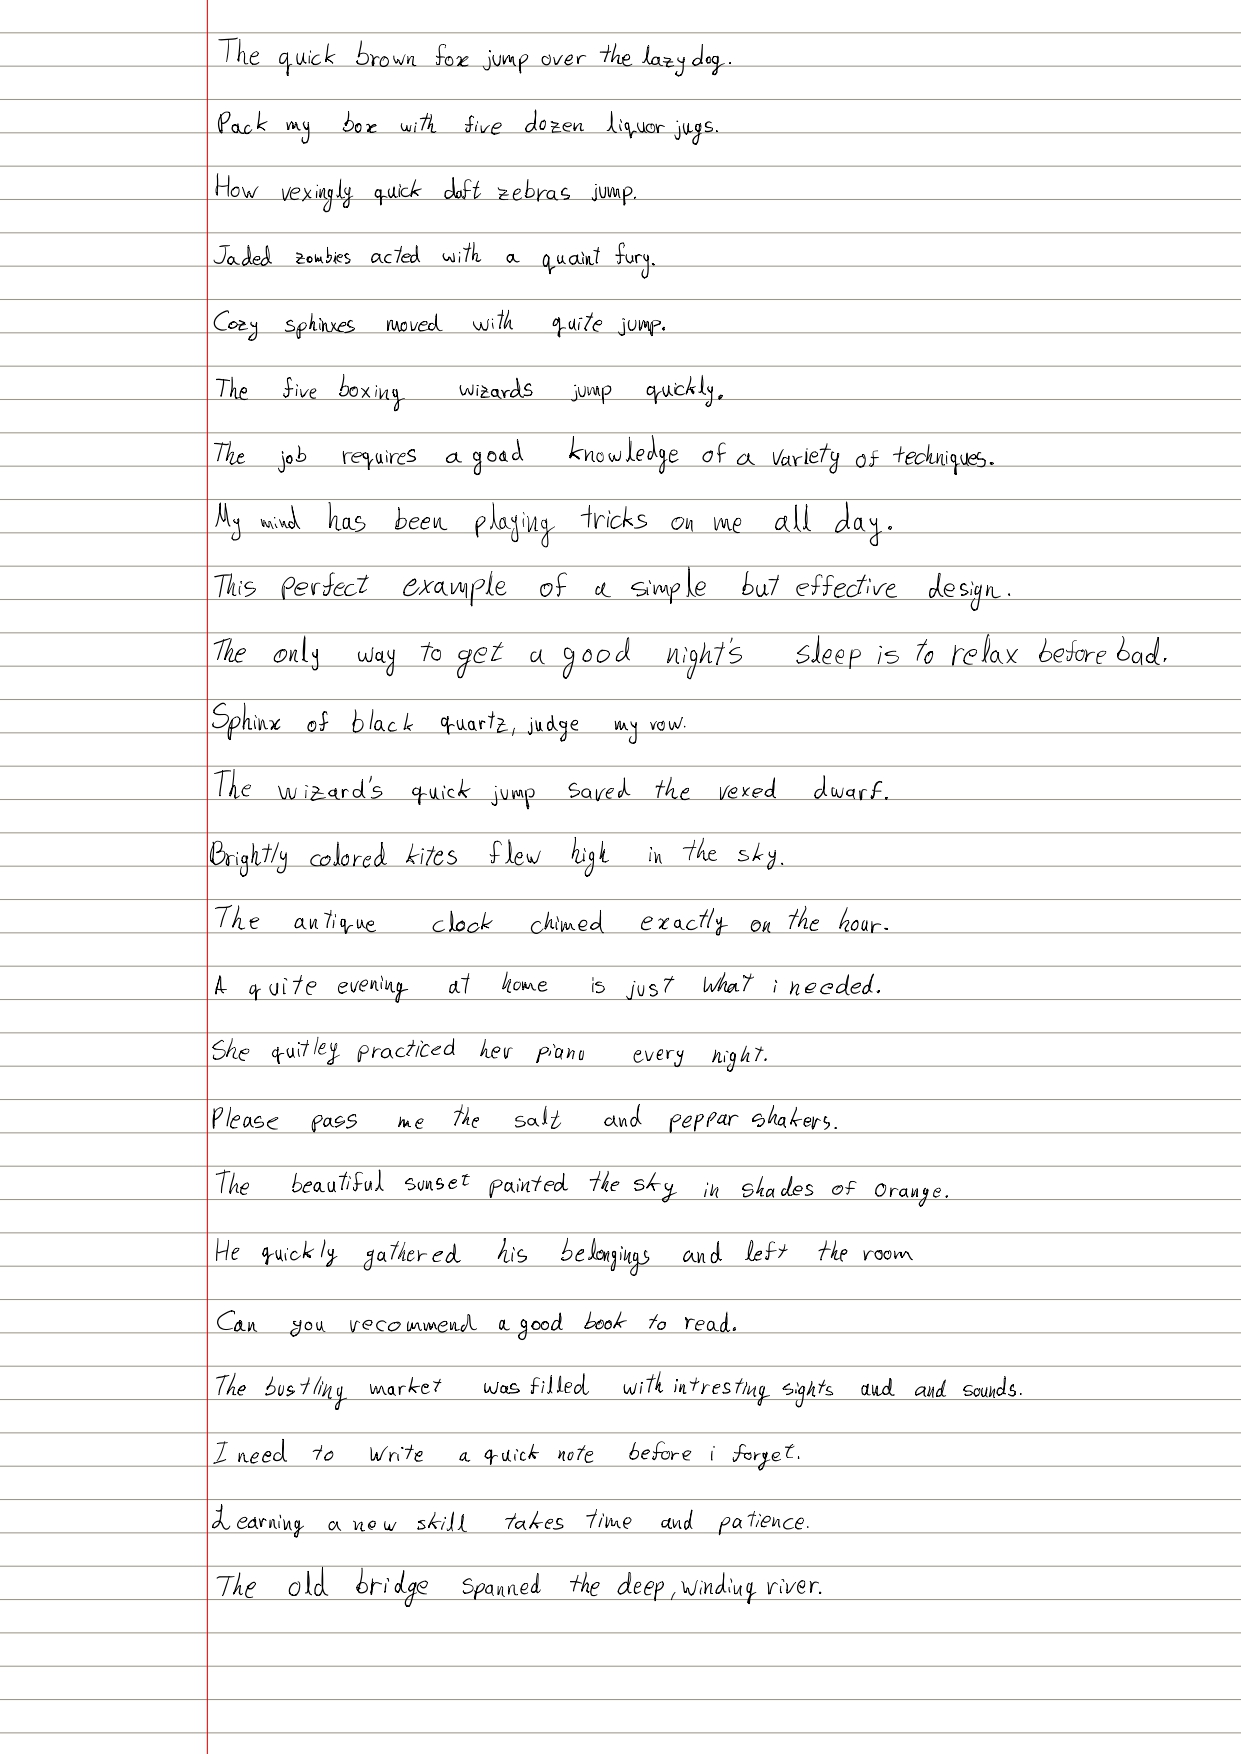 The quick brown fox jump over the lazy dog.
Pack my box with five dozen liquor jugs.
How vexingly quick daft zebras jump.
Jaded zombies acted with a quaint fury.
Cozy sphinxes moved with quite jump.
The five boxing wizards jump quickly.
The job requires a goad knowledge of a variety of techniques.
My mind has been playing tricks on me all day.
This perfect example of a simple but effective design.
The only way to get a good night's sleep is to relax before bad.
Sphinx of black quartz, judge my vow.
The wizard's quick jump saved the vexed dwarf.
Brightly colored kites flew high in the sky.
The antique clock chimed exactly on the hour.
A quite evening at home is just what i needed.
She quitley practiced her piano every night.
Please pass me the salt and peppar shakers.
The beautiful sunset painted the sky in shades of orange.
He quickly gathered his belongings and left the room
Can you recommend a good book to read.
The bustling market was filled with intresting sights and and sounds.
I need to write a quick note before i forget.
Learning a new skill takes time and patience.
The old bridge spanned the deep, winding river.